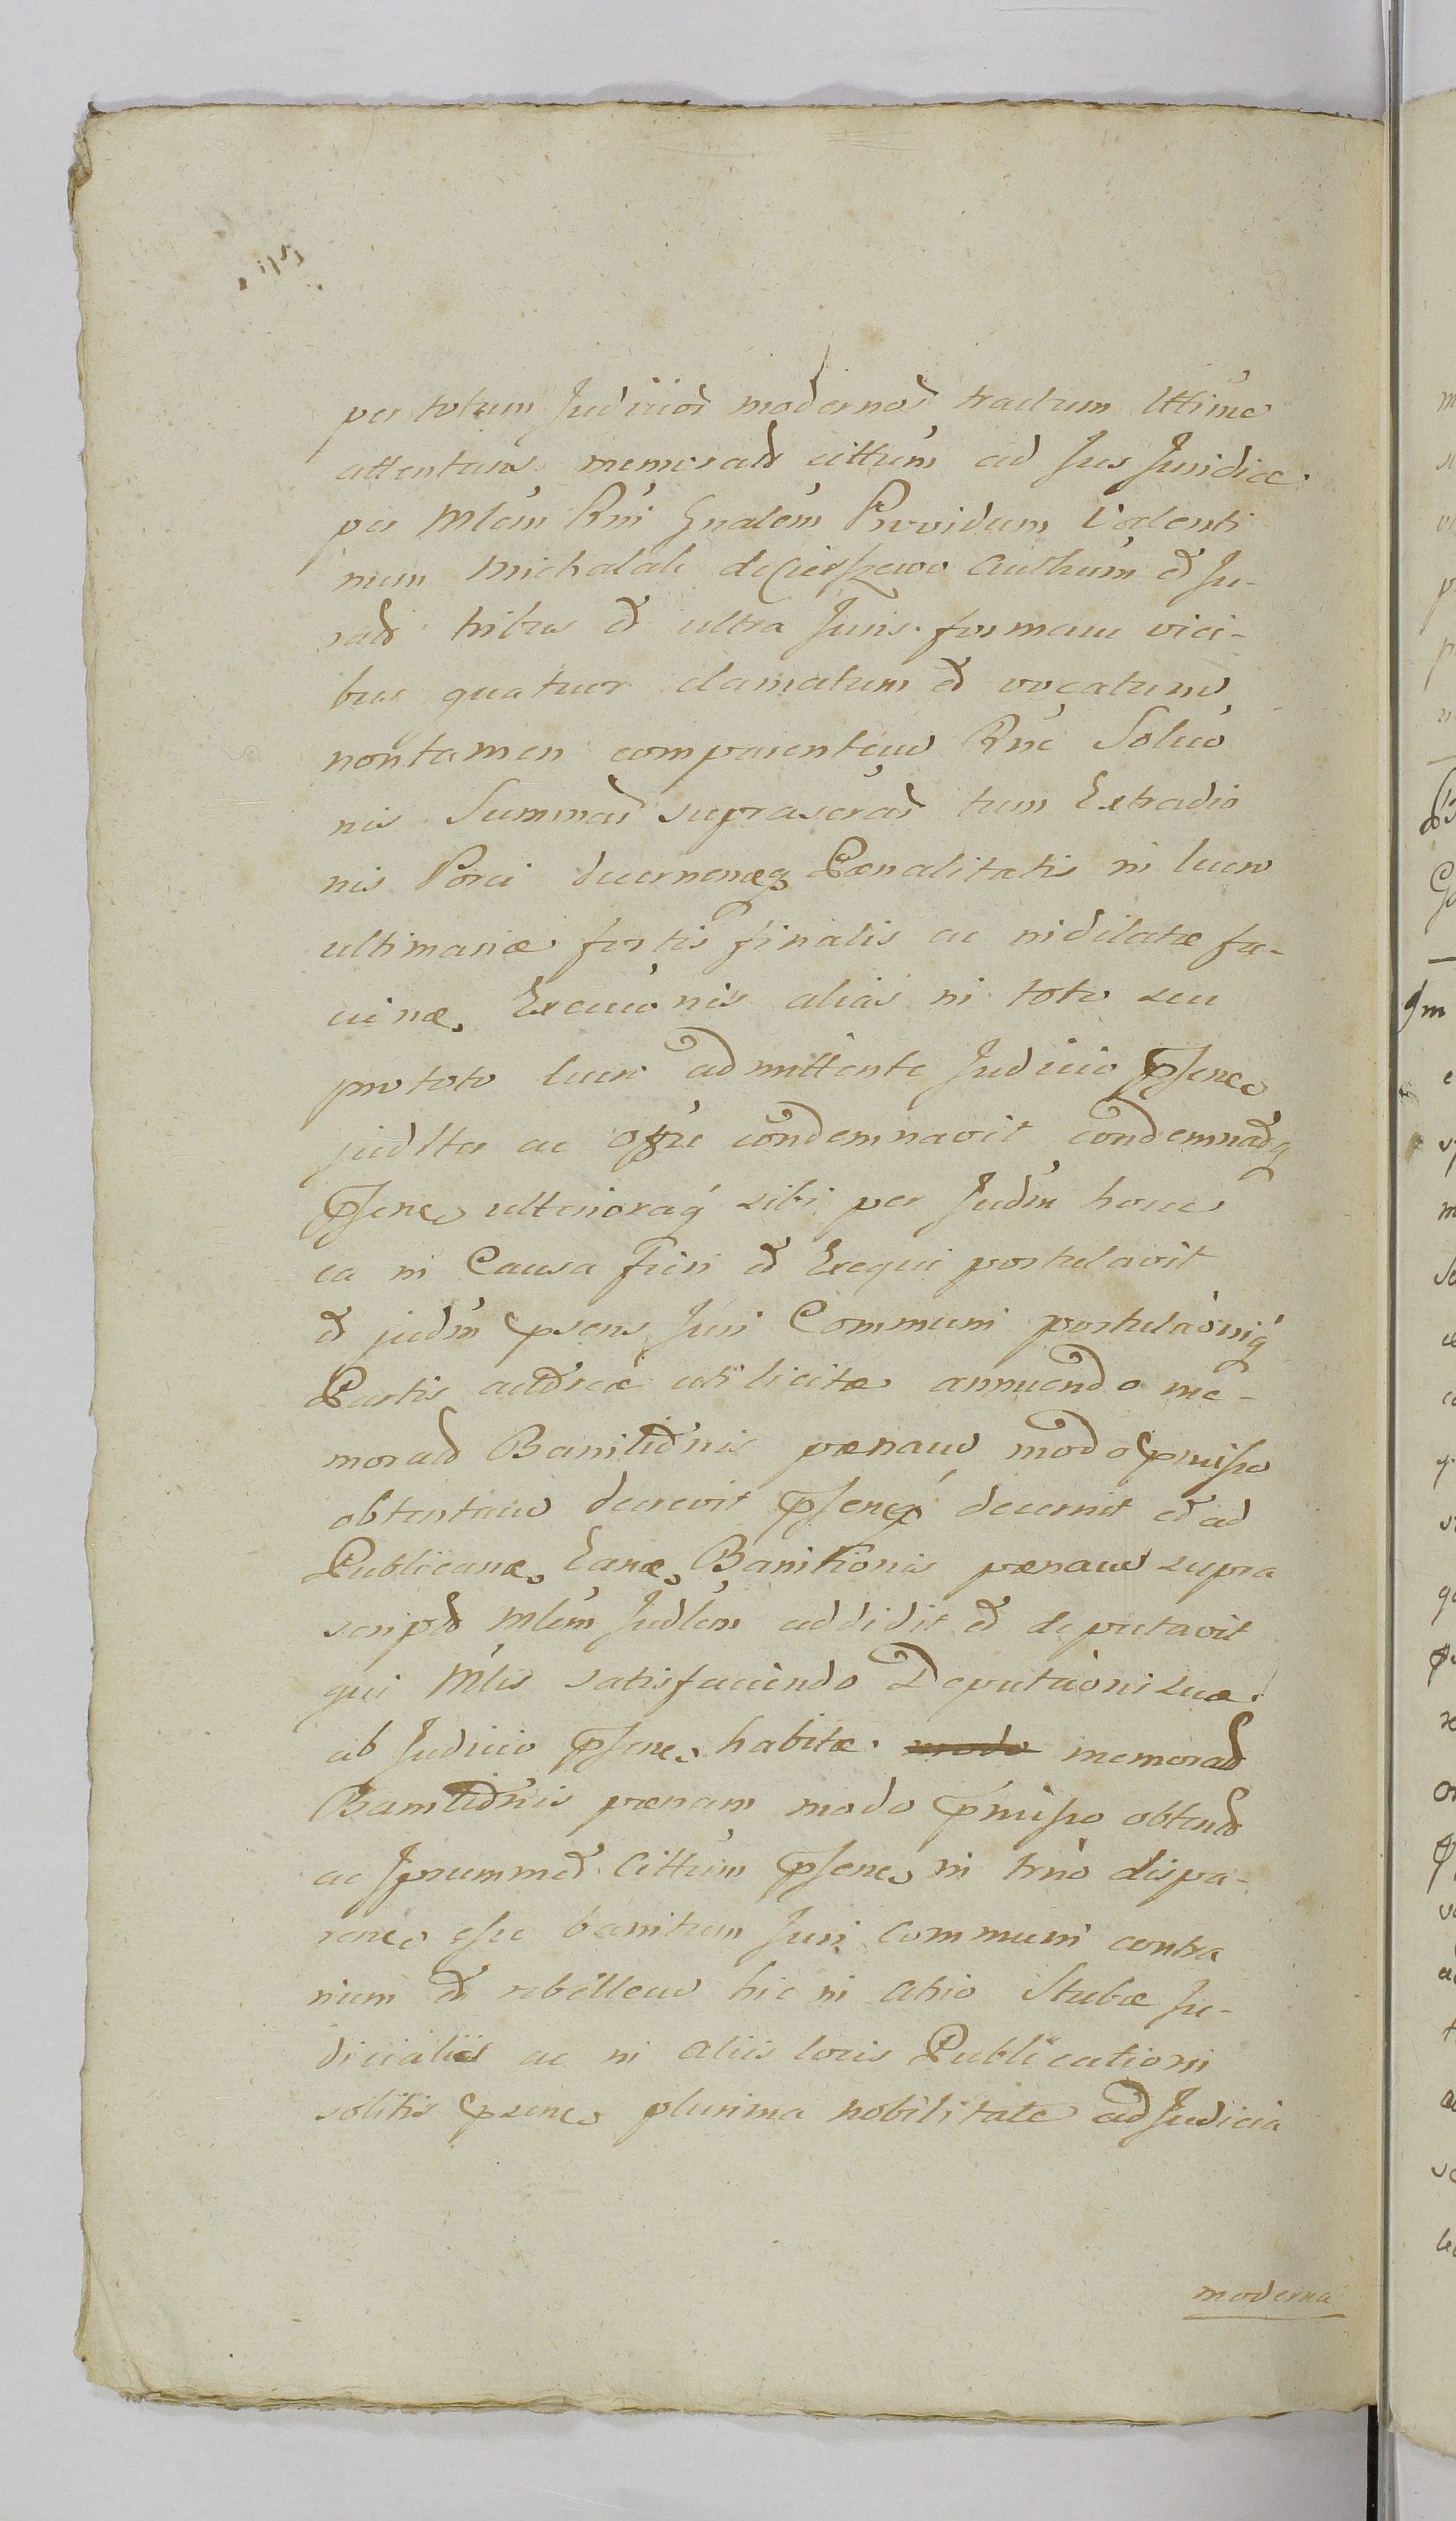 per totum Judicior modernor tractum lttime
attentans memorad citturn ad Jus Juridice
per Mlem Rni Gnalem Providum Valenti
num Michalak de Cierpzewo Authum et Ju-
rad tribus et ultra Juris formam vici-
bus quatuor clamatum et vocatum
non tamen comparentem Rne Soluo
nis Summar suprascrar tum Extradio
nis Porci decernenæq Pænalitatis in lucro
ultimariæ fortis finalis ac indilatæ fa-
cinæ Execuonis alias in toto seu
pro toto lucro admittente Judicio psene
judlter ac ofre condemnavit condemnadq
psene ulterioraq sibi per Judm hocce
ea in Causa Fieri et Exequi postulavit
et judm psens Juri Communi postulaoniq
Partis actoreæ uti licitæ annuendo me-
morad Banitionis pænam modo pmisso
obtentam decrevit pseneq decernit et ad
Publicanæ Eanæ Banitionis pænam supra
script Mlem Judlem addidit et deputavit
qui Mlis satisfaciendo Deputaoni suæ
ab Judicio psene habitæ modo memorad
Banitionis pænam modo pmisso obtend
ac Jprummet Cittum psene in trno dispa-
rene esse banitum Juri Communi contra
rium et rebellem hic in atrio Stubæ Ju-
dicialis ac in aliis locis Publicationi
solitis psene plurima nobilitate ad Judicia
moderna